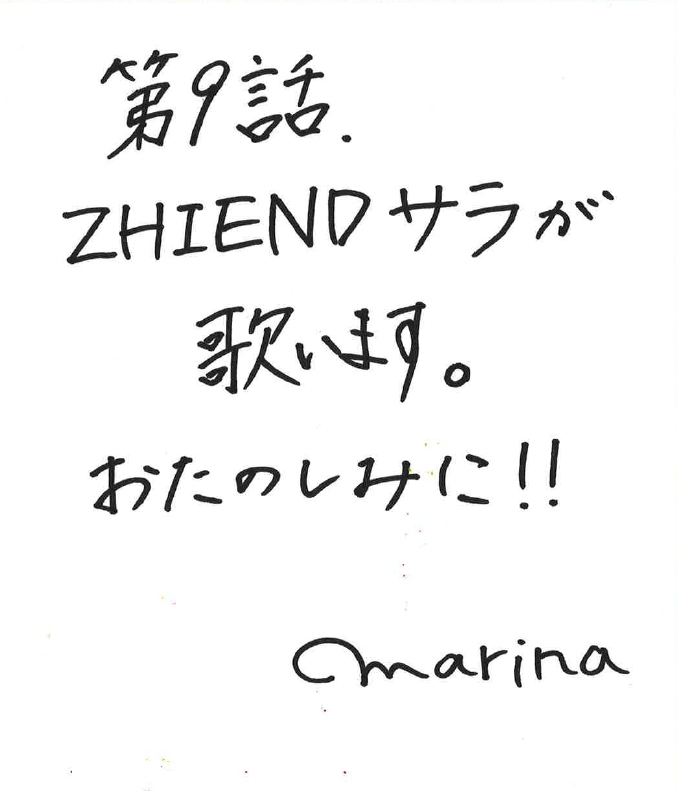 第9話.
ZHIENDサラが
歌います。
おたのしみに!!
marina